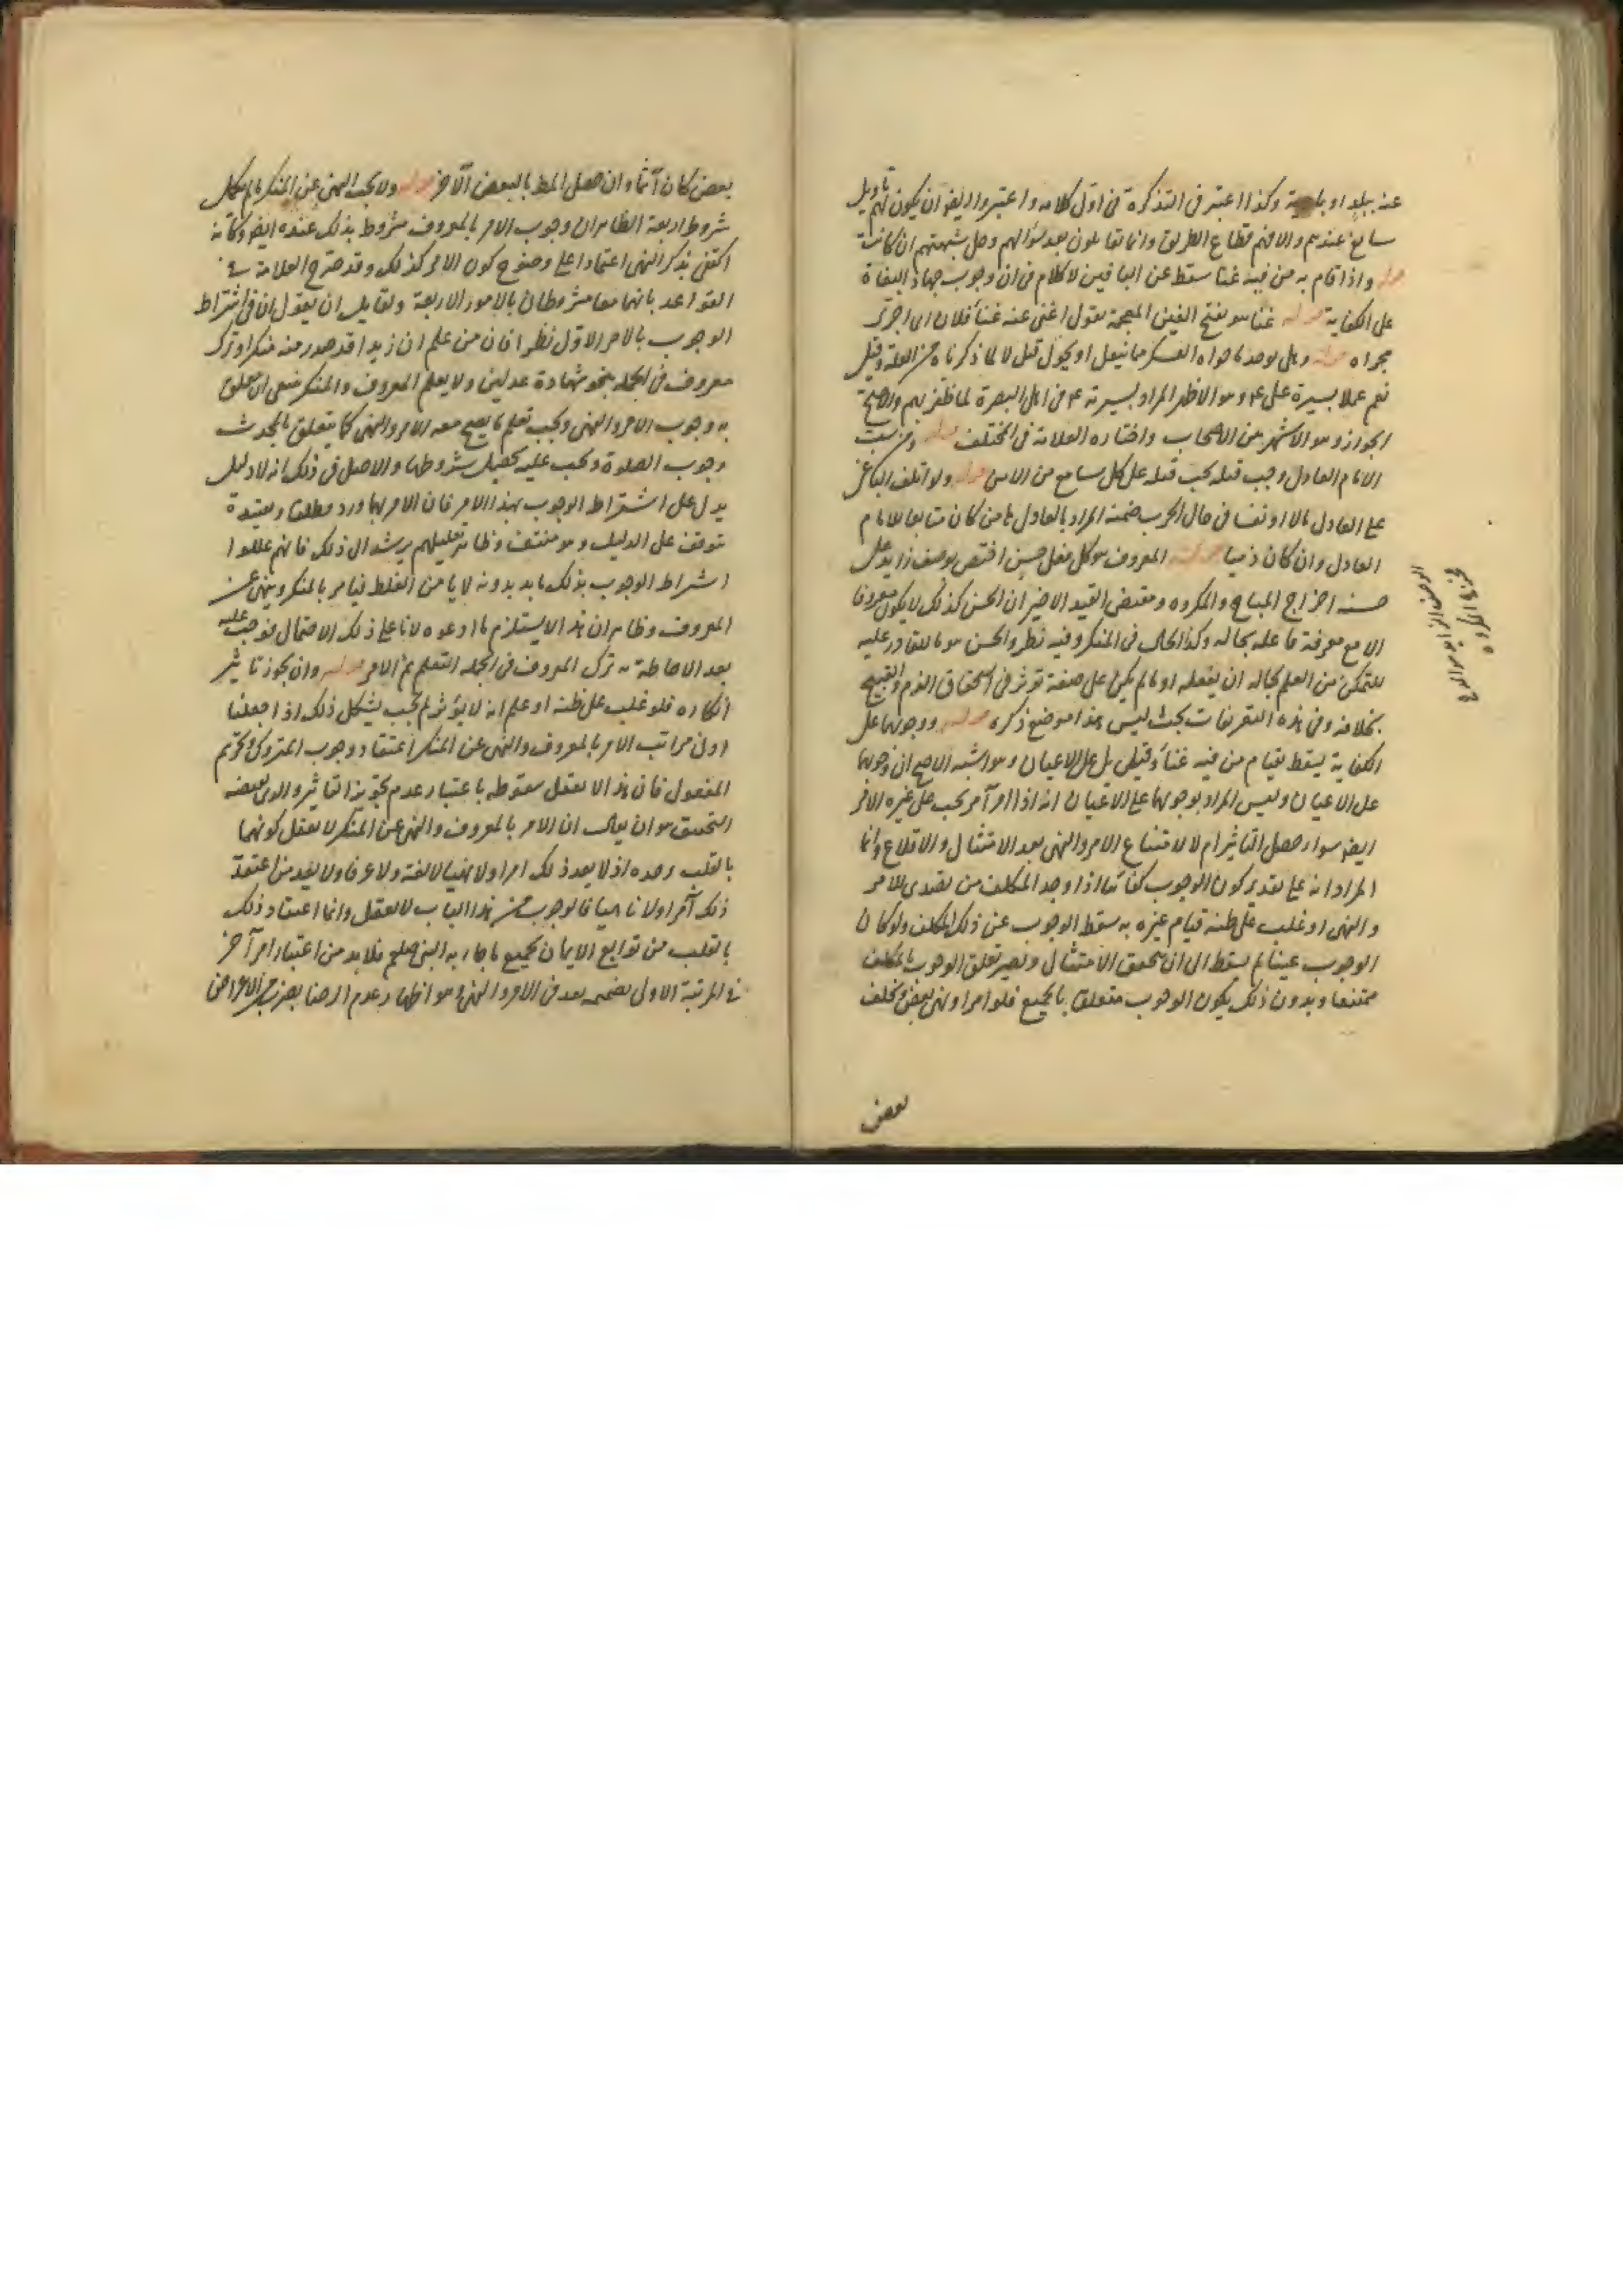 عنه ببلد او بادية وكذا اعتبر فى التذكرة فى اول كلامه واعتبروا ايضا ان يكون لهم تاويل
سايغ عندهم والا فهم قطاع الطريق وانما تقاتلون بعد سؤالهم وحل شبهتهم ان كانت
قوله واذا قام به من فيه غنا سقط عن الباقين لا كلام فى ان وجوب جهاد البغاة
على الكفاية قوله غنا هو بفتح الغين المعجمة يقول اغنى عنه غنا فلان اى اجزى
مجراه قوله وهل يوخذ ما حواه العسكر مما ينقل او يحول قيل لا لما ذكرناه من العلة وقيل
نعم عملا بسيرة على ع وهو الاظهر المراد بسيرته ع فى اهل البصرة لما ظفر بهم والاصح
الجواز وهو الاشهر بين الاصحاب واختاره العلامة فى المختلف قوله ومن سب
الامام العادل وجب قتله يجب قتله على كل سامع مع الامن قوله ولو اتلف الباغى
على العادل مالا او نفسا فى حال الحرب ضمنه المراد بالعادل هنا من كان متابعا للامام
العادل وان كان ذميا قوله المعروف هو كل فعل حسن اختص بوصف زايد على
حسنه اخراج المباح والمكروه ومقتضى القيد الاخير ان الحسن كذلك لا يكون معروفا
الا مع معرفة فاعله بحاله وكذا الحال فى المنكر وفيه نظر والحسن هو ما للقادر عليه
المتمكن من العلم بحاله ان يفعله او ما لم يكن على صفة توثر فى استحقاق الذم والقبيح
بخلافه وفى هذه التعريفات بحث ليس هذا موضع ذكره قوله ووجوبهما على
الكفاية يسقط بقيام من فيه غناء وقيل بل على الاعيان وهو اشبه الاصح ان وجوبهما
على الاعيان وليس المراد بوجوبهما على الاعيان انه اذا امر آمر يجب على غيره الامر
ايضا سواء حصل التاثير ام لا لامتناع الامر والنهى بعد الامتثال والاقلاع وانما
المراد انه على تقدير كون الوجوب كفائيا اذا وجد المكلف من تصدى للامر
والنهى او غلب على ظنه قيام غيره به سقط الوجوب عن ذلك المكلف ولو كان
الوجوب عينيا لم يسقط الى ان يتحقق الامتثال ويصير تعلق الوجوب بالمكلف
ممتنعا وبدون ذلك يكون الوجوب متعلقا بالجميع فلو امر او نهى بعض وتخلف
بعض
بعض كان آثما وان حصل المط بالبعض الآخر قوله ولا يجب النهى عن المنكر ما لم يكمل
شروط اربعة الظاهر ان وجوب الامر بالمعروف مشروط بذلك عنده ايضا وكانه
اكتفى بذكر النهى اعتمادا على وضوح كون الامر كذلك وقد صرح العلامة فى
القواعد بانهما معا مشروطان بالامور الاربعة ولقايل ان يقول ان فى اشتراط
الوجوب بالامر الاول نظرا فان من علم ان زيدا قد صدر منه منكر او ترك
معروف فى الجملة بنحو شهادة عدلين ولا يعلم المعروف والمنكر ينبغى ان يتعلق
به وجوب الامر والنهى ويجب تعلم ما يصح معه الامر والنهى كما يتعلق بالمحدث
وجوب الصلوة ويجب عليه تحصيل شروطها والاصل فى ذلك انه لا دليل
يدل على اشتراط الوجوب بهذا الامر فان الامر بهما ورد مطلقا وتقييده
يتوقف على الدليل وهو منتف وظاهر تعليلهم يرشد الى ذلك فانهم عللوا
اشتراط الوجوب بذلك بانه بدونه لا يامن الغلط فيامر بالمنكر وينهى عن
المعروف وظاهر ان هذا لا يستلزم ما ادعوه لانا على ذلك الاحتمال نوجب عليه
بعد الاحاطة بترك المعروف فى الجملة التعلم ثم الامر قوله وان يجوز تاثير
انكاره فلو غلب على ظنه او علم انه لا يؤثر لم يجب يشكل ذلك اذا جعلنا
اولى مراتب الامر بالمعروف والنهى عن المنكر اعتقاد وجوب المتروك وتحريم
المفعول فان هذا لا يعقل سقوطه باعتبار عدم تجويز التاثير والذى يقتضيه
التحقيق هو ان يقال ان الامر بالمعروف والنهى عن المنكر لا يعقل كونهما
بالقلب وحده اذ لا يعد ذلك امرا ولا نهيا لا لغة ولا عرفا ولا يعد من اعتقد
ذلك آمرا ولا ناهيا فالوجوب من هذا الباب لا يعقل وانما اعتقاد ذلك
بالقلب من توابع الايمان بجميع ما جاء به النبى صلعم فلا بد من اعتبار امر آخر
فى المرتبة الاولى بضميمه يعد فى الامر والنهى وهو اظهار عدم الرضا بضرب من الاعراض